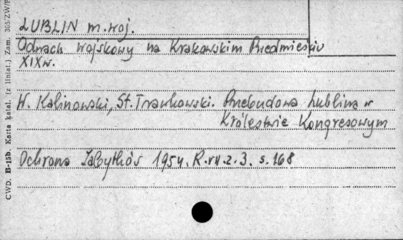 LUBLIN m. woj.
Odwach wojskowy na Krakowskim Przedmieściu
XIX w.
W. Kalinowski, St. Trawkowski. Przebudowa Lublina w
Królestwie Kongresowym
Ochrona Zabytków 1954. R. VII z. 3. s. 168
CWD. B-15b. Karta katal. (z liniat.) Zam.